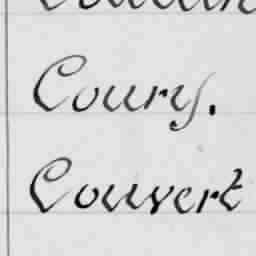 Coury.
Couvert